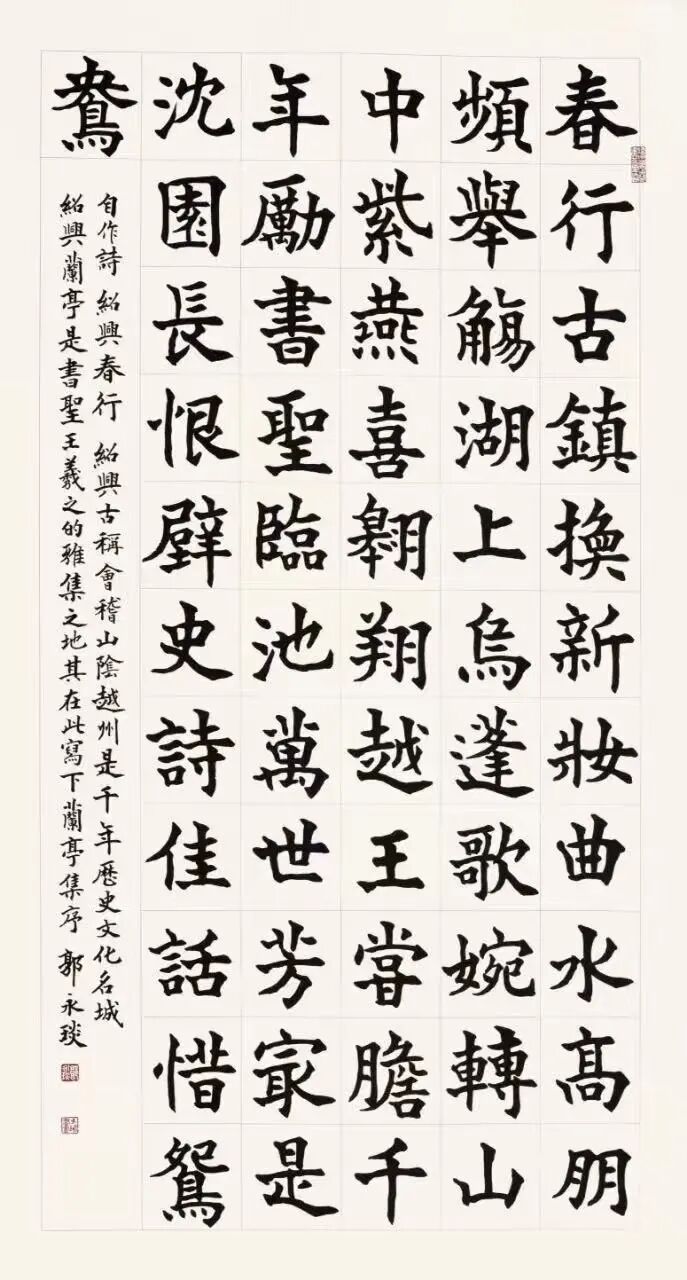 春行古鎮換新妝曲水高朋
頻舉觴湖上烏蓬歌婉轉山
中紫燕喜翱翔越王嘗膽千
年勵書聖臨池萬世芳㝡是
沈園長恨壁史詩佳話惜鴛
鴦
自作詩 紹興春行 紹興古稱會稽山陰越州是千年歷史文化名城
紹興蘭亭是書聖王羲之的雅集之地其在此寫下蘭亭集序 郭永琰